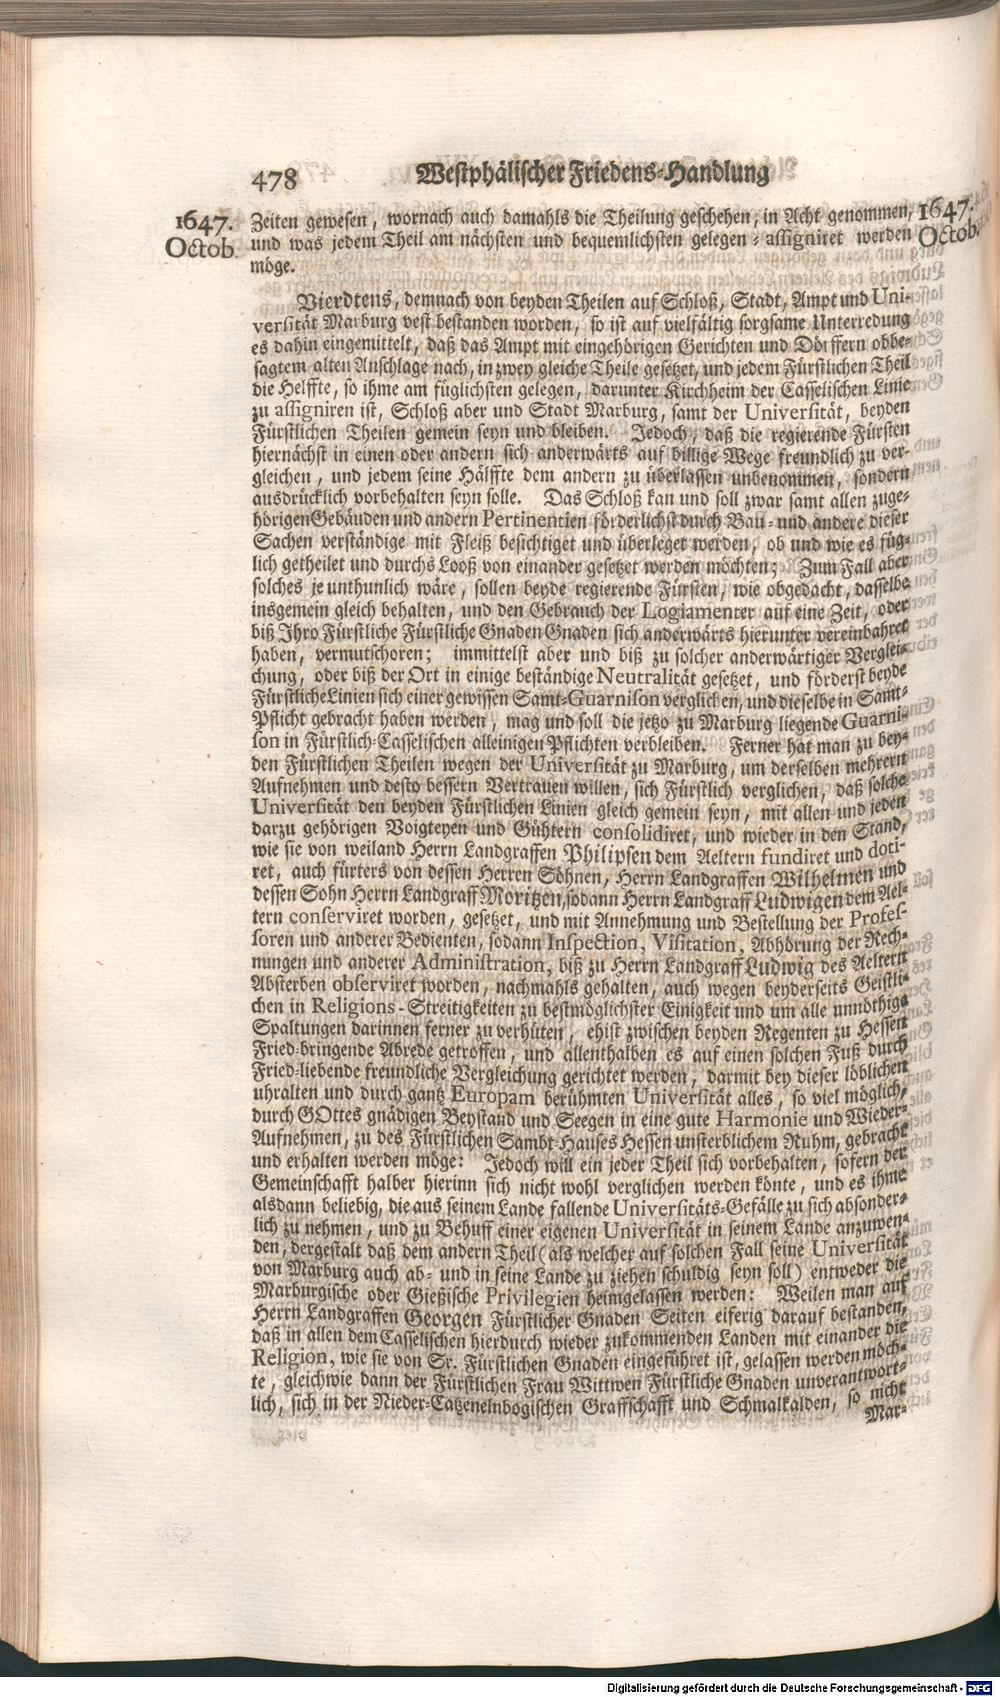 478 Westphälischer Friedens-Handlung
1647. Octob.
1647. Octob.
Zeiten gewesen, wornach auch damahls die Theilung geschehen, in Acht genommen,
und was jedem Theil am nächsten und bequemlichsten gelegen, assigniret werden
möge.
Vierdtens, demnach von beyden Theilen auf Schloß, Stadt, Ampt und Uni-
versität Marburg vest bestanden worden, so ist auf vielfältig sorgsame Unterredung
es dahin eingemittelt, daß das Ampt mit eingehörigen Gerichten und Dörffern obbe-
sagtem alten Anschlage nach, in zwey gleiche Theile gesetzet, und jedem Fürstlichen Theil
die Helffte, so ihme am füglichsten gelegen, darunter Kirchheim der Casselischen Linie
zu assigniren ist, Schloß aber und Stadt Marburg, samt der Universität, beyden
Fürstlichen Theilen gemein seyn und bleiben. Jedoch, daß die regierende Fürsten
hiernächst in einen oder andern sich anderwärts auf billige Wege freundlich zu ver-
gleichen, und jedem seine Hälffte dem andern zu überlassen unbenommen, sondern
ausdrücklich vorbehalten seyn solle. Das Schloß kan und soll zwar samt allen zuge-
hörigen Gebäuden und andern Pertinentien förderlichst durch Bau- und andere dieser
Sachen verständige mit Fleiß besichtiget und überleget werden, ob und wie es füg-
lich getheilet und durchs Looß von einander gesetzet werden möchten; Zum Fall aber
solches je unthunlich wäre, sollen beyde regierende Fürsten, wie obgedacht, dasselbe
insgemein gleich behalten, und den Gebrauch der Logiamenter auf eine Zeit, oder
biß Ihro Fürstliche Fürstliche Gnaden Gnaden sich anderwärts hierunter vereinbahret
haben, vermutschoren; immittelst aber und biß zu solcher anderwärtiger Verglei-
chung, oder biß der Ort in einige beständige Neutralität gesetzet, und förderst beyde
Fürstliche Linien sich einer gewissen Samt-Guarnison verglichen, und dieselbe in Samt-
Pflicht gebracht haben werden, mag und soll die jetzo zu Marburg liegende Guarni-
son in Fürstlich-Casselischen alleinigen Pflichten verbleiben. Ferner hat man zu bey-
den Fürstlichen Theilen wegen der Universität zu Marburg, um derselben mehrern
Aufnehmen und desto bessern Vertrauen willen, sich Fürstlich verglichen, daß solche
Universität den beyden Fürstlichen Linien gleich gemein seyn, mit allen und jeden
darzu gehörigen Voigteyen und Gühtern consolidiret, und wieder in den Stand,
wie sie von weiland Herrn Landgraffen Philipsen dem Aeltern fundiret und doti-
ret, auch fürters von dessen Herren Söhnen, Herrn Landgraffen Wilhelmen und
dessen Sohn Herrn Landgraff Moritzen, sodann Herrn Landgraff Ludwigen dem Ael-
tern conserviret worden, gesetzet, und mit Annehmung und Bestellung der Profes-
soren und anderer Bedienten, sodann Inspection, Visitation, Abhörung der Rech-
nungen und anderer Administration, biß zu Herrn Landgraff Ludwig des Aeltern
Absterben observiret worden, nachmahls gehalten, auch wegen beyderseits Geistli-
chen in Religions-Streitigkeiten zu bestmöglichster Einigkeit und um alle unnöthige
Spaltungen darinnen ferner zu verhüten, ehist zwischen beyden Regenten zu Hessen
Fried-bringende Abrede getroffen, und allenthalben es auf einen solchen Fuß durch
Fried-liebende freundliche Vergleichung gerichtet werden, darmit bey dieser löblichen
uhralten und durch gantz Europam berühmten Universität alles, so viel möglich,
durch GOttes gnädigen Beystand und Seegen in eine gute Harmonie und Wieder-
Aufnehmen, zu des Fürstlichen Sambt-Hauses Hessen unsterblichem Ruhm, gebracht
und erhalten werden möge: Jedoch will ein jeder Theil sich vorbehalten, sofern der
Gemeinschafft halber hierinn sich nicht wohl verglichen werden könte, und es ihme
alsdann beliebig, die aus seinem Lande fallende Universitäts-Gefälle zu sich absonder-
lich zu nehmen, und zu Behuff einer eigenen Universität in seinem Lande anzuwen-
den, dergestalt daß dem andern Theil (als welcher auf solchen Fall seine Universität
von Marburg auch ab- und in seine Lande zu ziehen schuldig seyn soll) entweder die
Marburgische oder Gießische Privilegien heimgelassen werden: Weilen man auf
Herrn Landgraffen Georgen Fürstlicher Gnaden Seiten eiferig darauf bestanden,
daß in allen dem Casselischen hierdurch wieder zukommenden Landen mit einander die
Religion, wie sie von Sr. Fürstlichen Gnaden eingeführet ist, gelassen werden möch-
te, gleichwie dann der Fürstlichen Frau Wittwen Fürstliche Gnaden unverantwort-
lich, sich in der Nieder-Catzenelnbogischen Graffschafft und Schmalkalden, so nicht
Mar-
Digitalisierung gefördert durch die Deutsche Forschungsgemeinschaft - DFG